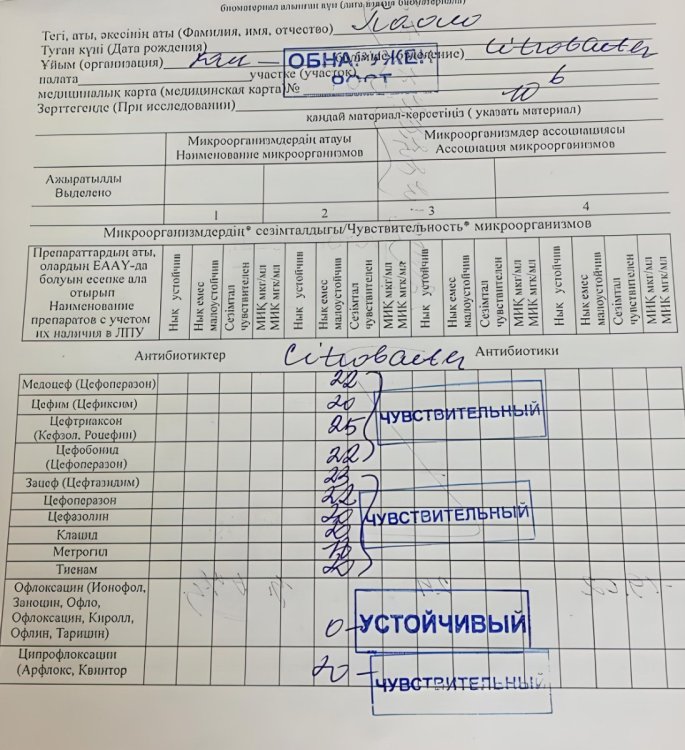 Тегі, аты, әкесінің аты (Фамилия, имя, отчество)
Туған күні (Дата рождения)
Ұйым (организация) Citrobacter
ОБНАРУЖЕН
РОСТ
палата участке (участок)
медициналық карта (медицинская карта)№
Зерттегенде (При исследовании) 10 6
қандай материал-көрсетіңіз ( указать материал)
Микроорганизмдердің атауы Микроорганизмдер ассоциациясы
Наименование микроорганизмов Ассоциация микроорганизмов
Ажыратылды
Выделено
1 2 3 4
Микроорганизмдердің* сезімталдығы/Чувствительность* микроорганизмов
Препараттардың аты,
олардың ЕААУ-да
болуын есепке ала
отырып
Наименование
препаратов с учетом
их наличия в ЛПУ
Нық устойчив
Нық емес малоустойчив
Сезімтал чувствителен
МИҚ мкг/мл МИК мгк/мл
Нық устойчив
Нық емес малоустойчив
Сезімтал чувствителен
МИҚ мкг/мл МИК мгк/мл
Нық устойчив
Нық емес малоустойчив
Сезімтал чувствителен
МИҚ мкг/мл МИК мгк/мл
Нық устойчив
Нық емес малоустойчив
Сезімтал чувствителен
МИҚ мкг/мл МИК мгк/мл
Антибиотиктер Citrobacter Антибиотики
Медоцеф (Цефоперазон) 22
Цефим (Цефиксим) 20
ЧУВСТВИТЕЛЬНЫЙ
Цефтриаксон 25
(Кефзол, Роцефин)
Цефобонид 22
(Цефоперазон)
Зацеф (Цефтазидим) 23
Цефоперазон 22
Цефазолин 20
ЧУВСТВИТЕЛЬНЫЙ
Клацид 20
Метрогил
Тиенам 20
Офлоксацин (Ионофол,
Заноцин, Офло,
Офлоксацин, Киролл,
Офлин, Таришин) 0 - УСТОЙЧИВЫЙ
Ципрофлоксации
(Арфлокс, Квинтор 20 - ЧУВСТВИТЕЛЬНЫЙ